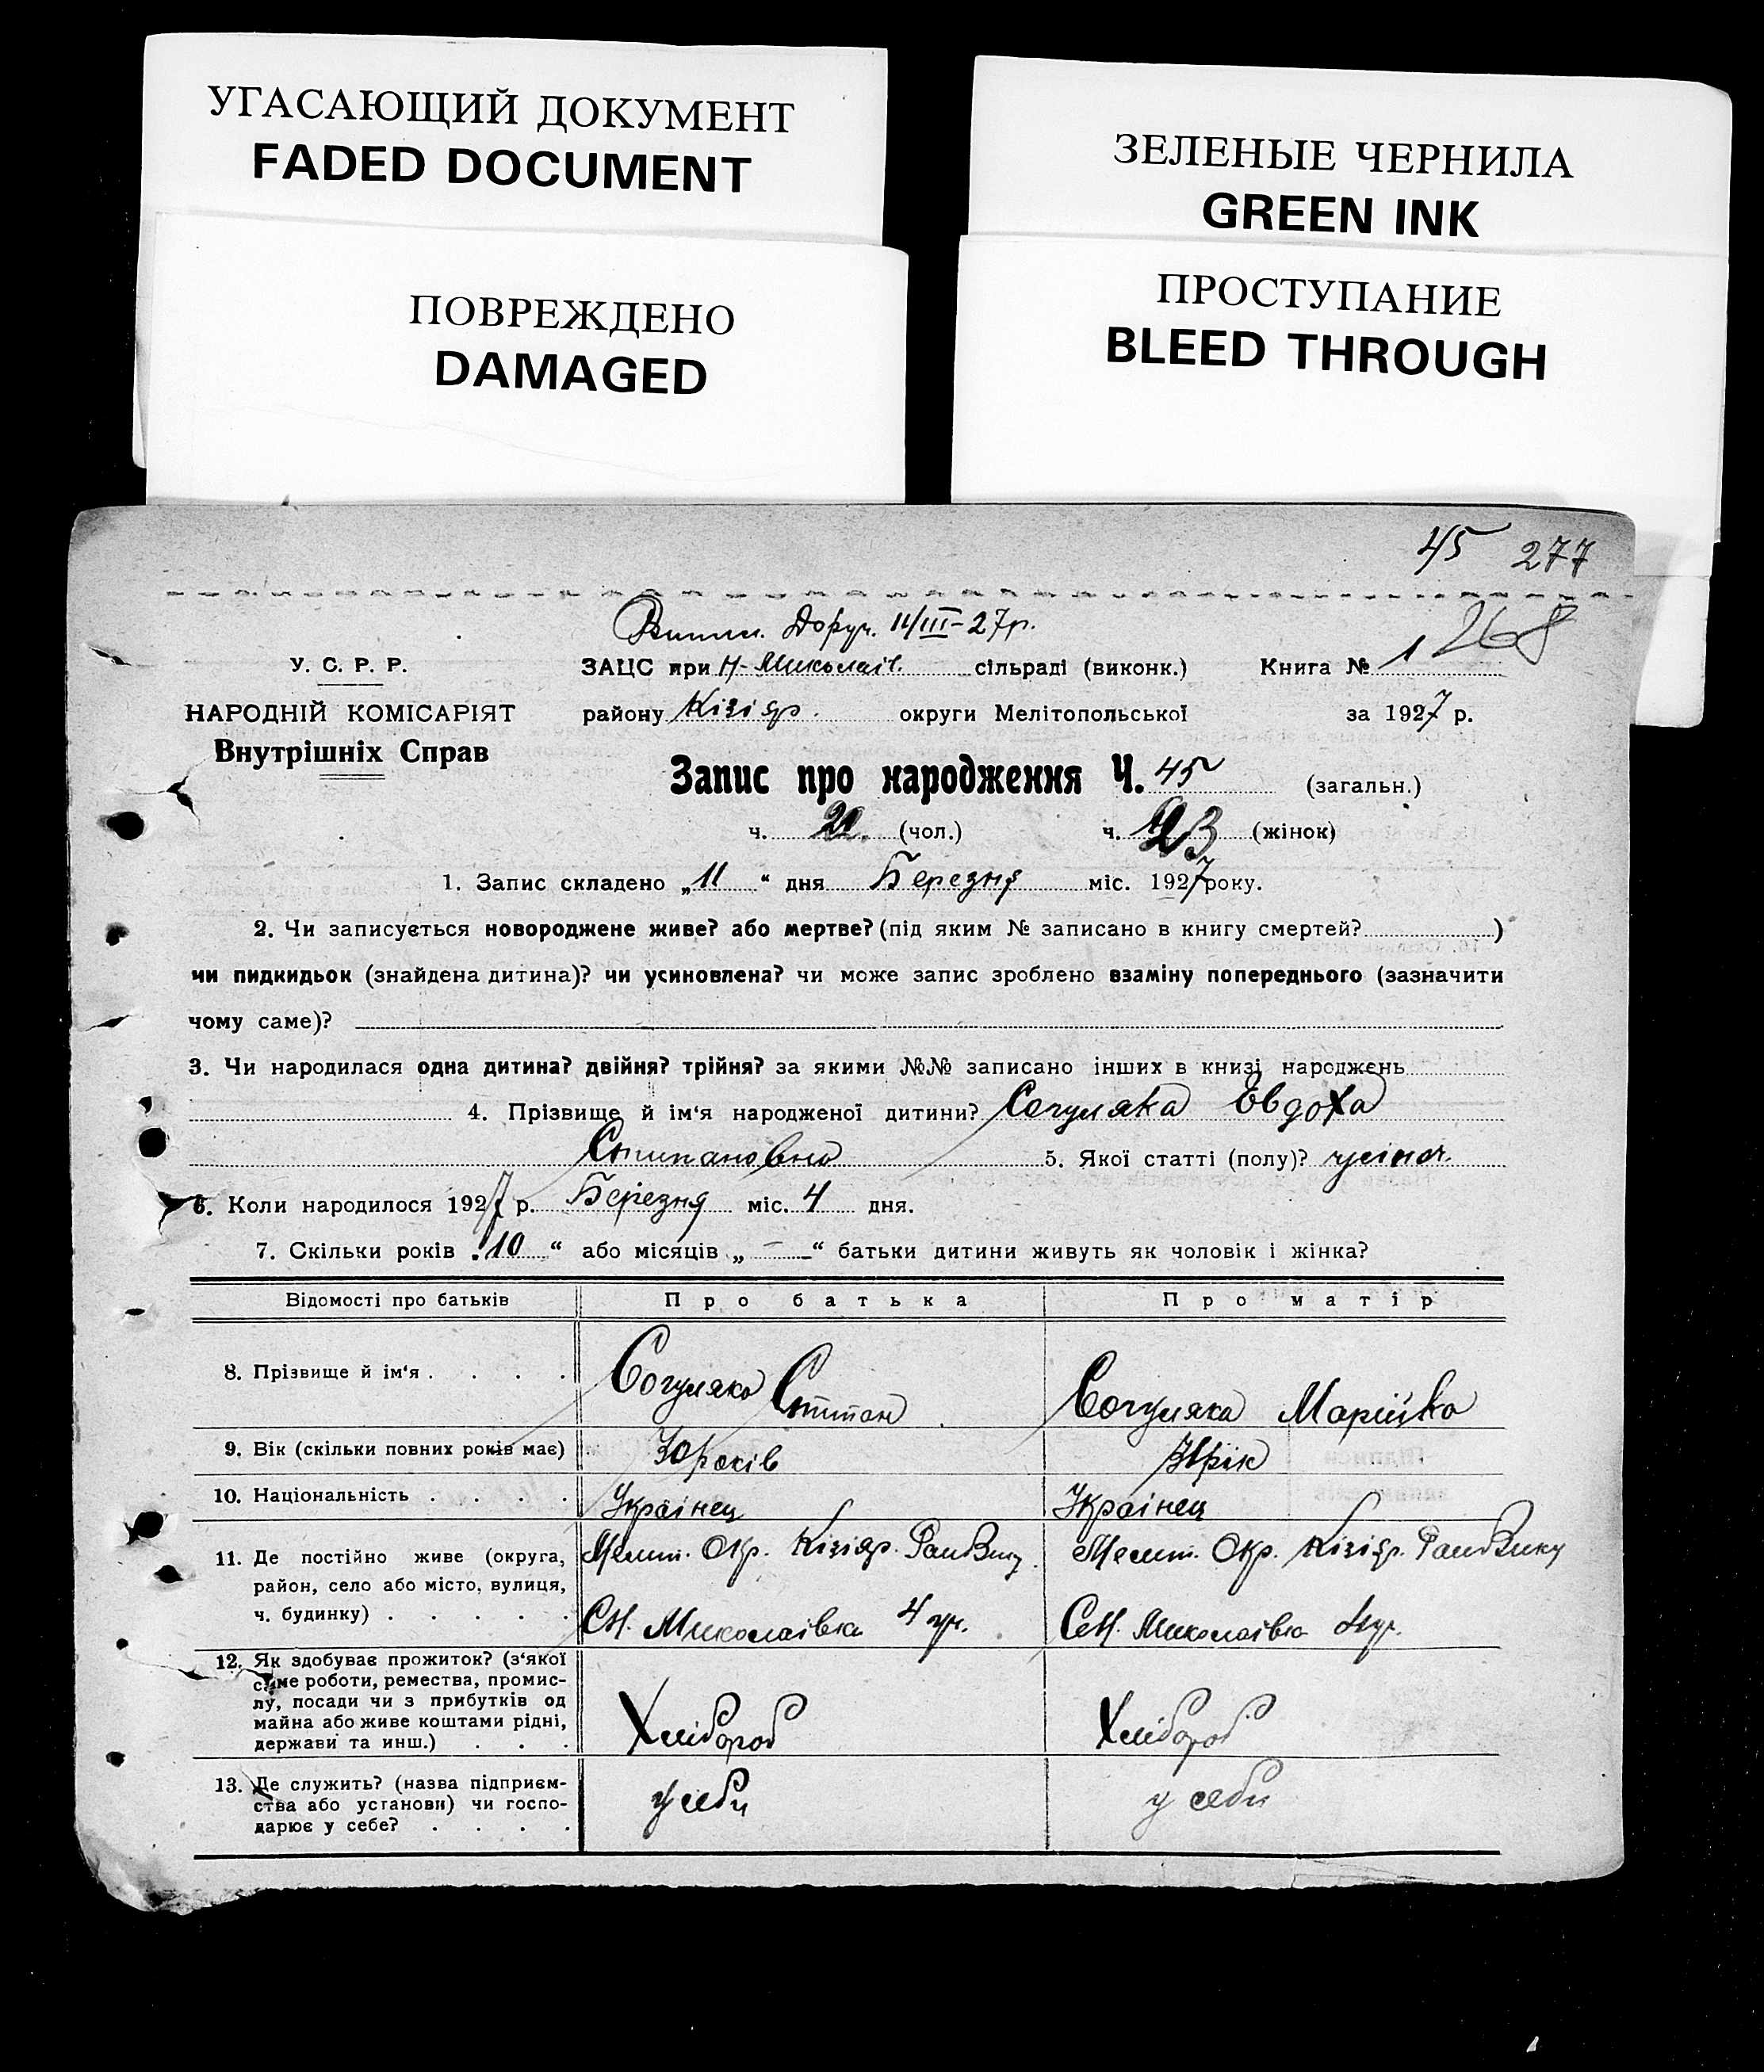 УГАСАЮЩИЙ ДОКУМЕНТ
FADED DOCUMENT
ЗЕЛЕНЫЕ ЧЕРНИЛА
GREEN INK
ПОВРЕЖДЕНО
DAMAGED
ПРОСТУПАНИЕ
BLEED THROUGH
45 277
268
Випис. Доруч. 11/III-27р.
У. С. Р. Р.
ЗАЦС при Н-Миколаїв. сільраді (виконк.) Книга № 1
НАРОДНІЙ КОМІСАРІЯТ
району Кізіяр. округи Мелітопольської за 1927 р.
Внутрішніх Справ
Запис про народження Ч. 45 (загальн.)
ч. 22. (чол.) ч. 23 (жінок)
1. Запис складено „11“ дня Березня міс. 1927 року.
2. Чи записується новороджене живе? або мертве? (під яким № записано в книгу смертей? )
чи пидкидьок (знайдена дитина)? чи усиновлена? чи може запис зроблено взаміну попереднього (зазначити
чому саме)?
3. Чи народилася одна дитина? двійня? трійня? за якими №№ записано інших в книзі народжень
4. Прізвище й ім‘я народженої дитини? Согуляка Евдоха
Стипановна 5. Якої статті (полу)? жіноч.
6. Коли народилося 1927 р. Березня міс. 4 дня.
7. Скільки років „10“ або місяців „-“ батьки дитини живуть як чоловік і жінка?
Відомості про батьків Про батька Про матір
8. Прізвище й ім‘я . . . . Согуляка Стипан Согуляка Марійка
9. Вік (скільки повних років має) 30 років 31 рік
10. Національність . . . . Українец Українец
11. Де постійно живе (округа,
район, село або місто, вулиця,
ч. будинку) . . . . .
Мелит. Окр. Кізіяр. Мелит. Окр. Кізіяр.
СН. Миколаівка 4 уч. СеН. Миколаівка 4 уч.
12. Як здобуває прожиток? (з‘якої
саме роботи, ремества, промис-
лу, посади чи з прибутків од
майна або живе коштами рідні,
держави та инш.) . . .
Хлібороб Хлібороб
13. Де служить? (назва підприєм-
ства або установи) чи госпо-
дарює у себе? . . . .
у себи у себи